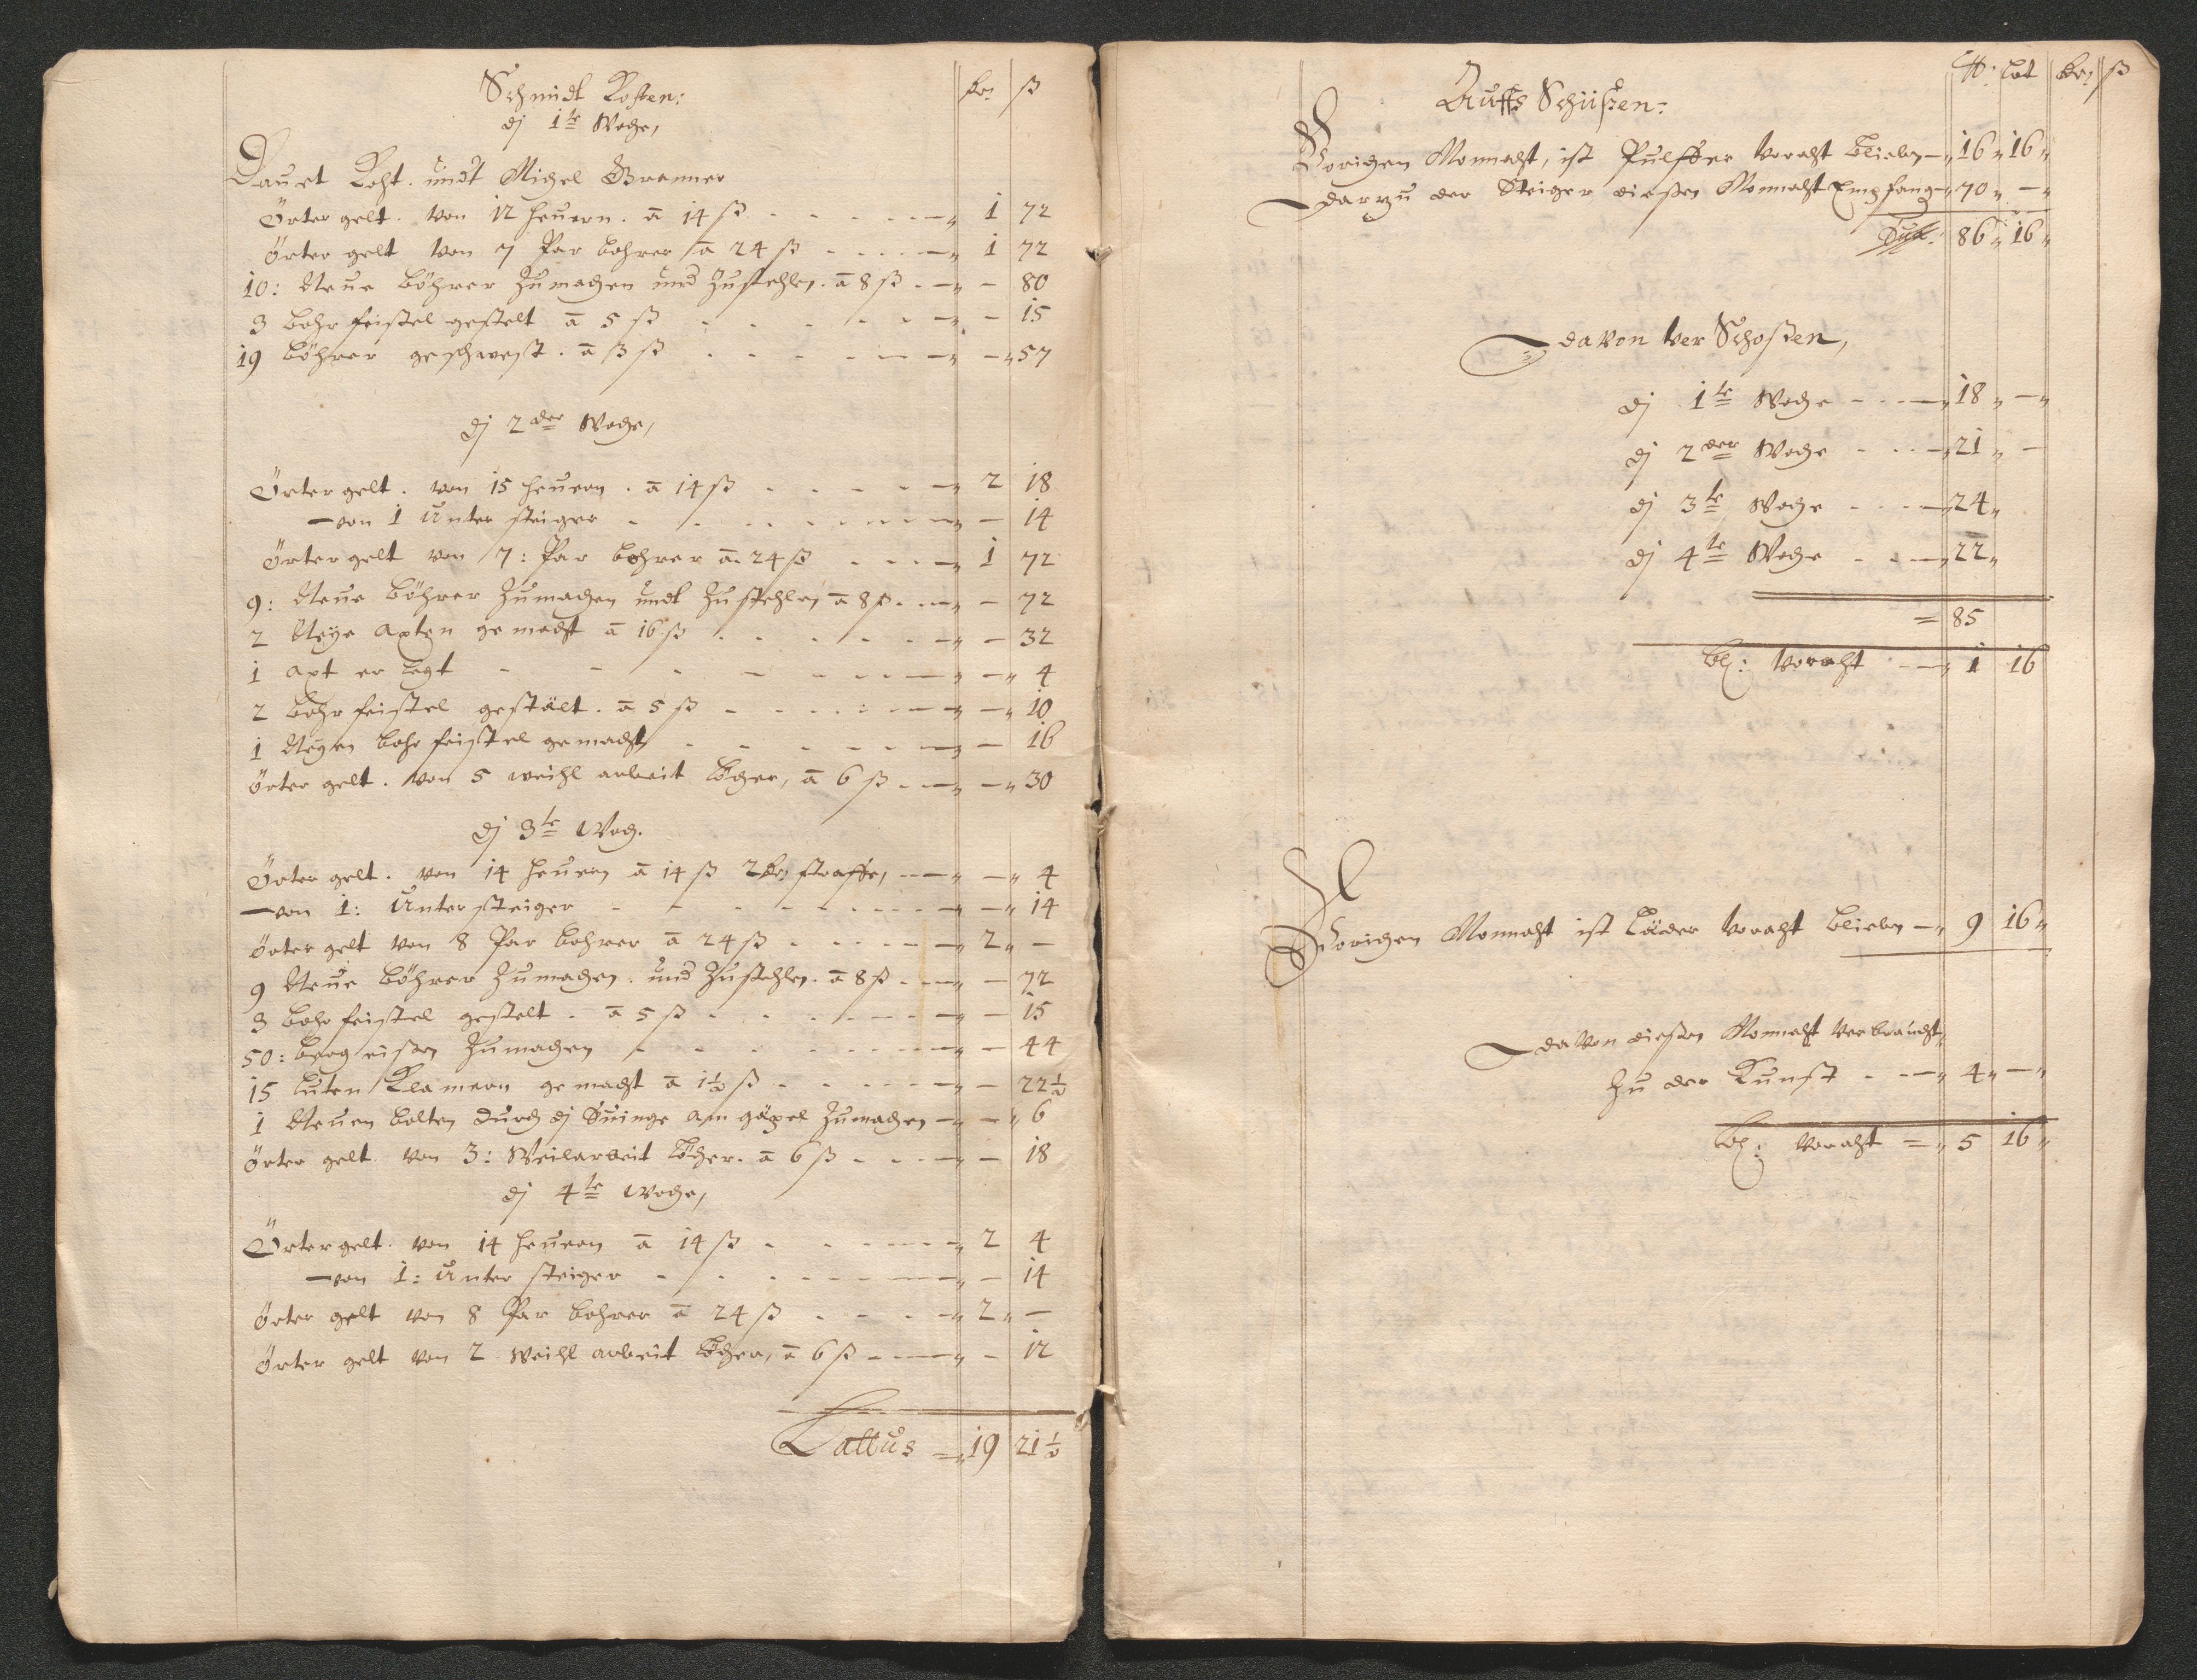 Schmidt Kosten:
fl: ß
dj 1te Woche,
Dauet Koht. undt Michel Brenner
Örter gelt. von 12 heuern. a 14 ß - - - - - — 1 72
Örter gelt von 7 Par bohrer a 24 ß - - - - — 1 72
10: Neue böhrer Zumachen und Zustehlen. a 8 ß - — — 80
3 bohr feistel gestelt a 5 ß - - - - - — — 15
19 böhrer geschwest. a 3 ß - - - - - — — 57
dj 2der Woche,
Örter gelt. von 15 heuern. a 14 ß - - - - — 2 18
—von 1 Unter steiger - - - - - — — 14
Örter gelt von 7: Par bohrer a 24 ß - - - — 1 72
9: Neue böhrer Zumachen undt Zustehlen a 8 ß - — — 72
2 Neye axten gemacht a 16 ß - - - - — — 32
1 axt er legt - - - - - — — 4
2 bohr feistel gestält. a 5 ß - - - - — — 10
1 Neyen bohr feistel gemacht - - - - — — 16
Örter gelt. von 5 weihl arbeit Löcher, a 6 ß - — — 30
dj 3te Woch.
Örter gelt. von 14 heuern a 14 ß straffe, - — — 4
—von 1: Unter steiger - - - - - — — 14
Örter gelt von 8 Par bohrer a 24 ß - - - - — 2 —
9 Neue böhrer Zumachen. und Zustehlen. a 8 ß - — — 72
3 bohr feistel gestelt. a 5 ß - - - - — — 15
50: berg eisen Zumachen - - - - — — 44
15 Luten Klamern gemacht a 1½ ß - - - - — — 22½
1 Neuen bolten durch dj am göpel Zumachen — — 6
Örter gelt. von 3: Weilarbeit Löcher. a 6 ß - - — — 18
dj 4te Woche,
Örter gelt. von 14 heuern a 14 ß - - - - — 2 4
—von 1: Unter steiger - - - - - — — 14
Örter gelt von 8 Par bohrer a 24 ß - - - — 2 —
Örter gelt von 2 Weihl arbeit Löcher, a 6 ß - — — 12
Lattus = 19 21½
Lot ß
Auffs Schüßen:
Vorigen Monnacht, ist Pulffer Voraht blieben — 16 16
darzu der Steiger diesen Monnacht Empfang — 70 —
86 16
davon ver Schoßen,
dj 1te Woche - - — 18 —
dj 2der Woche - - — 21 —
dj 3te Woche - - — 24
dj 4te Woche - - — 22
= 85
bl: Voraht - — 1 16
Vorigen Monnacht ist Läder Voraht blieben — 9 16
davon diesen Monnacht Verbraucht,
Zu der Kunst - - — 4 —
bl: Voraht = 5 16